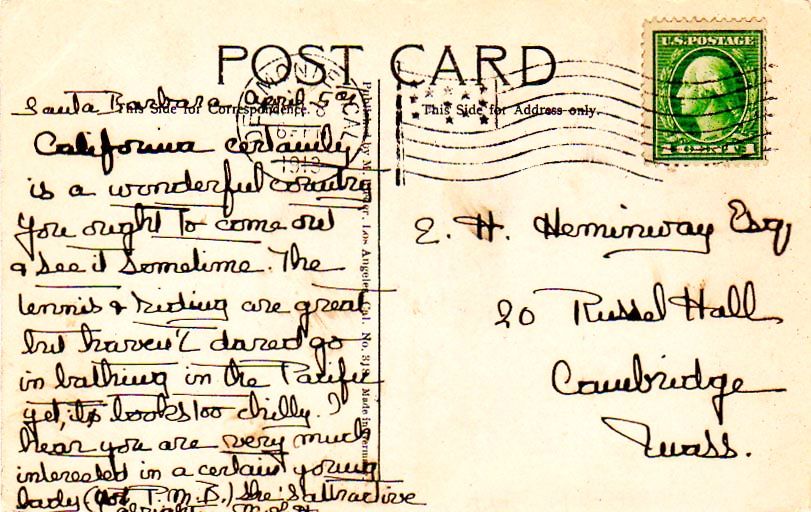 POST CARD
This Side for Correspondence.
This Side for Address only.
U.S. POSTAGE
1 CENT 1
CAL
1913
Santa Barbara April 5
California certainly
is a wonderful country
you ought to come out
& see it sometime. The
tennis & riding are great
but haven't dared go
in bathing in the Pacific
yet, its looks too chilly. I
hear you are very much
interested in a certain young
lady (not P.M.B.) She's attractive
alright
Los Angeles, Cal. No.
Made in
E. H. Heminway Esq,
20 Russel Hall
Cambridge
Mass.